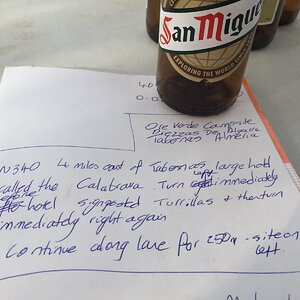 San Miguel
EXPLORING THE WORLD
40
0-0
Oje Verde Campsite
Tabernas Almeria
N340 4 miles east of Tabernas large hotel
called the Calatrava Turn left immediately
hotel signposted Turrillas & then turn
immediately right again
Continue along lane for 250m - site on
left.